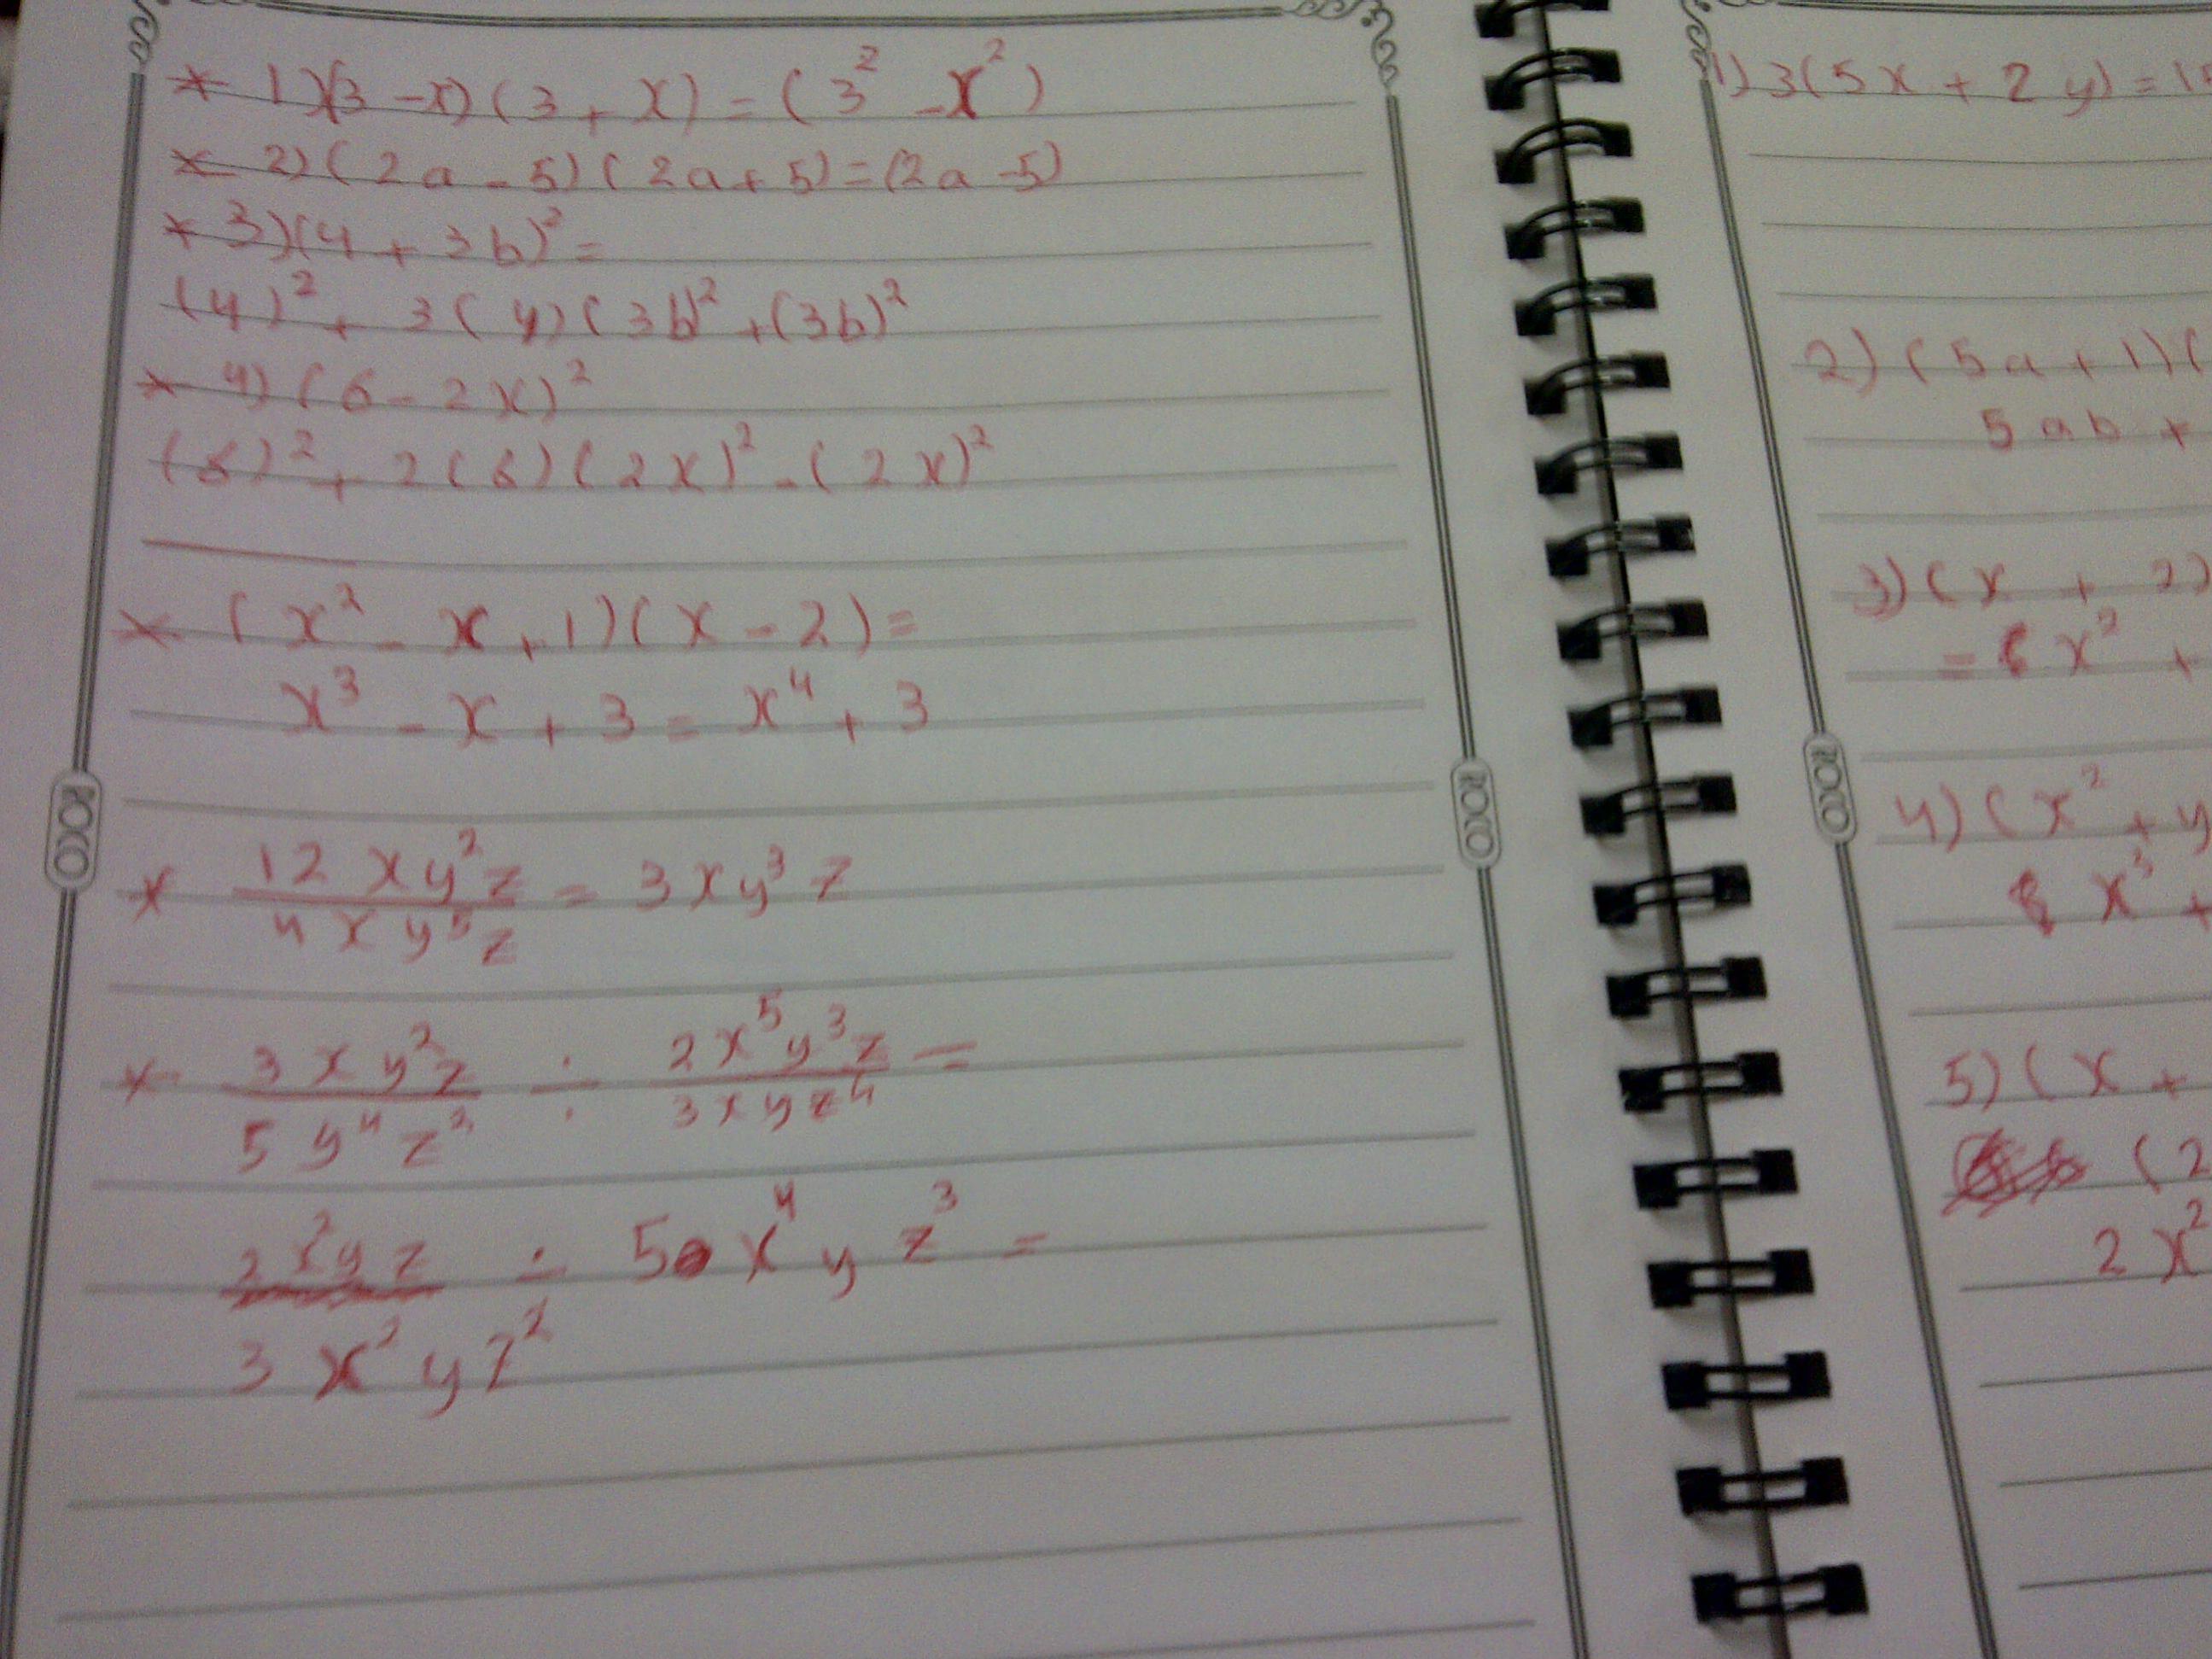 * 1) (3 - x) (3 + x) = (3² - x²)
* 2) (2a - 5) (2a + 5) = (2a - 5)
* 3) (4 + 3b)² =
(4)² + 3(4)(3b)² + (3b)²
* 4) (6 - 2x)²
(6)² + 2(6)(2x)² - (2x)²
* (x² - x + 1)(x - 2) =
x³ - x + 3 = x⁴ + 3
* 12 xy²z / 4xy⁵z = 3xy³z
* 3xy²z / 5y⁴z² ÷ 2x⁵y³z / 3xyz⁴ =
2x²yz / 3x²yz² ÷ 5x⁴yz³ =
ROCO
ROCO
1) 3(5x + 2y) = 1
2) (5a + 1)(
5ab +
3) (x + 2)
= x² +
4) (x² + y
x³ +
5) (x +
(2
2x²
ROCO